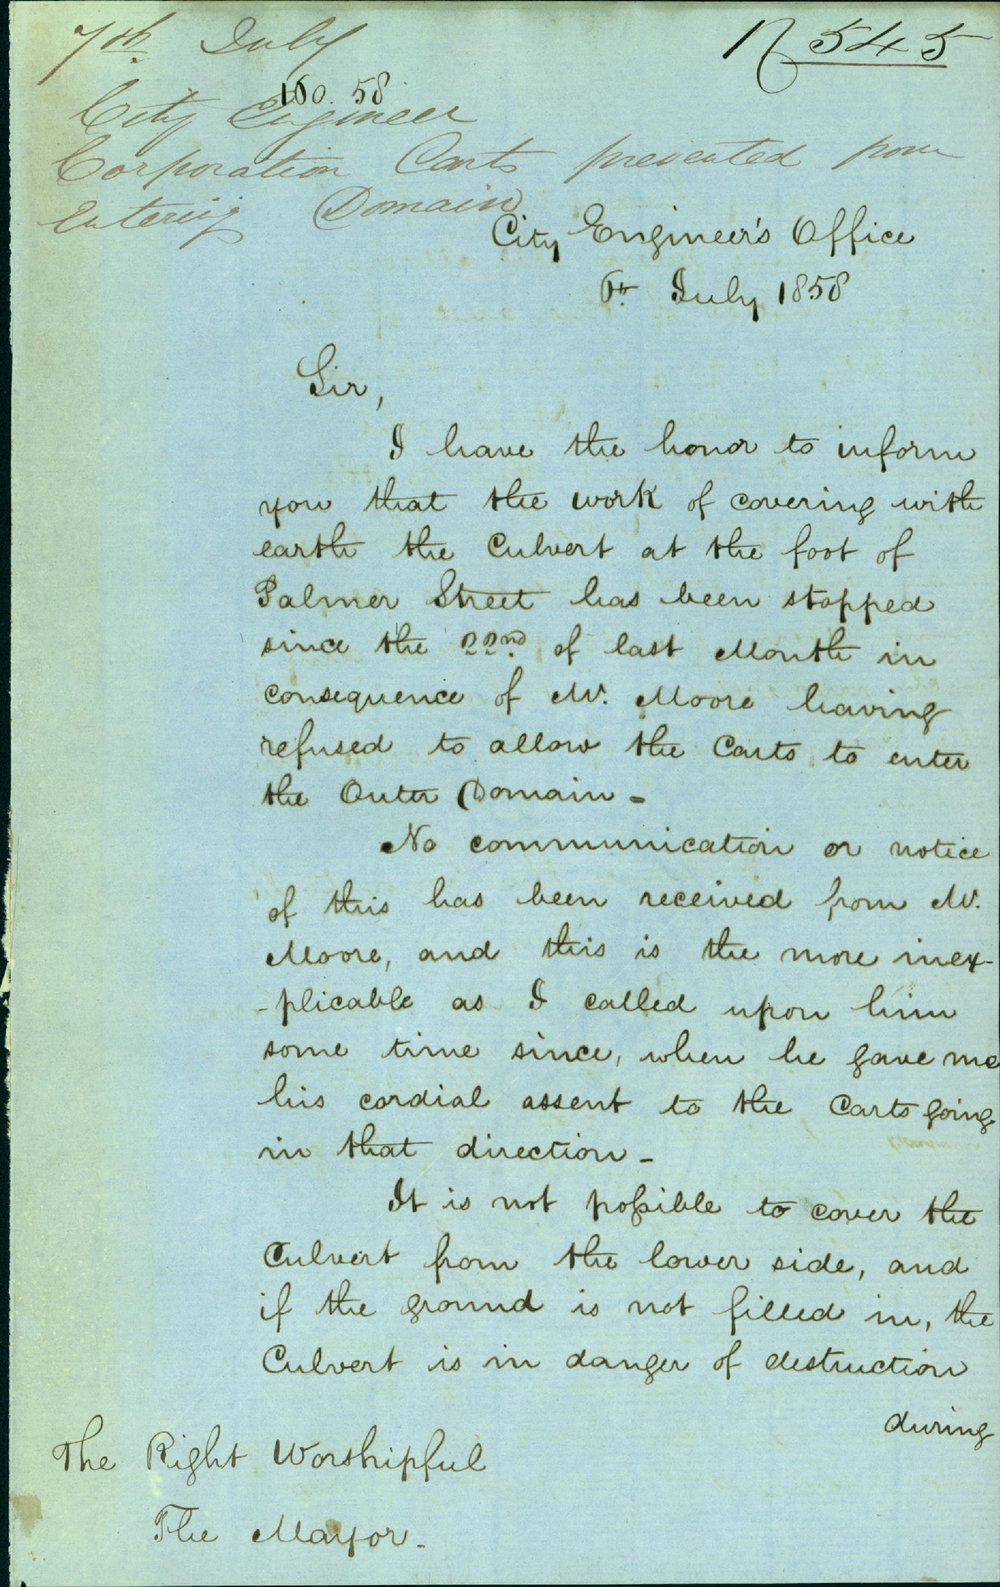 7th. July
No 545
160. 58
City Engineer
Corporation Carts prevented from
Entering Domain
City Engineer's Office
6th July 1858
Sir,
I have the honor to inform
you that the work of covering with
earth the Culvert at the foot of
Palmer Street has been stopped
since the 22nd of last Month in
consequence of Mr. Moore having
refused to allow the Carts to enter
the Outer Domain -
No communication or notice
of this has been received from Mr.
Moore, and this is the more inex-
-plicable as I called upon him
some time since, when he gave me
his cordial assent to the Carts going
in that direction -
It is not possible to cover the
Culvert from the lower side, and
if the ground is not filled in, the
Culvert is in danger of destruction
during
The Right Worshipful
The Mayor -